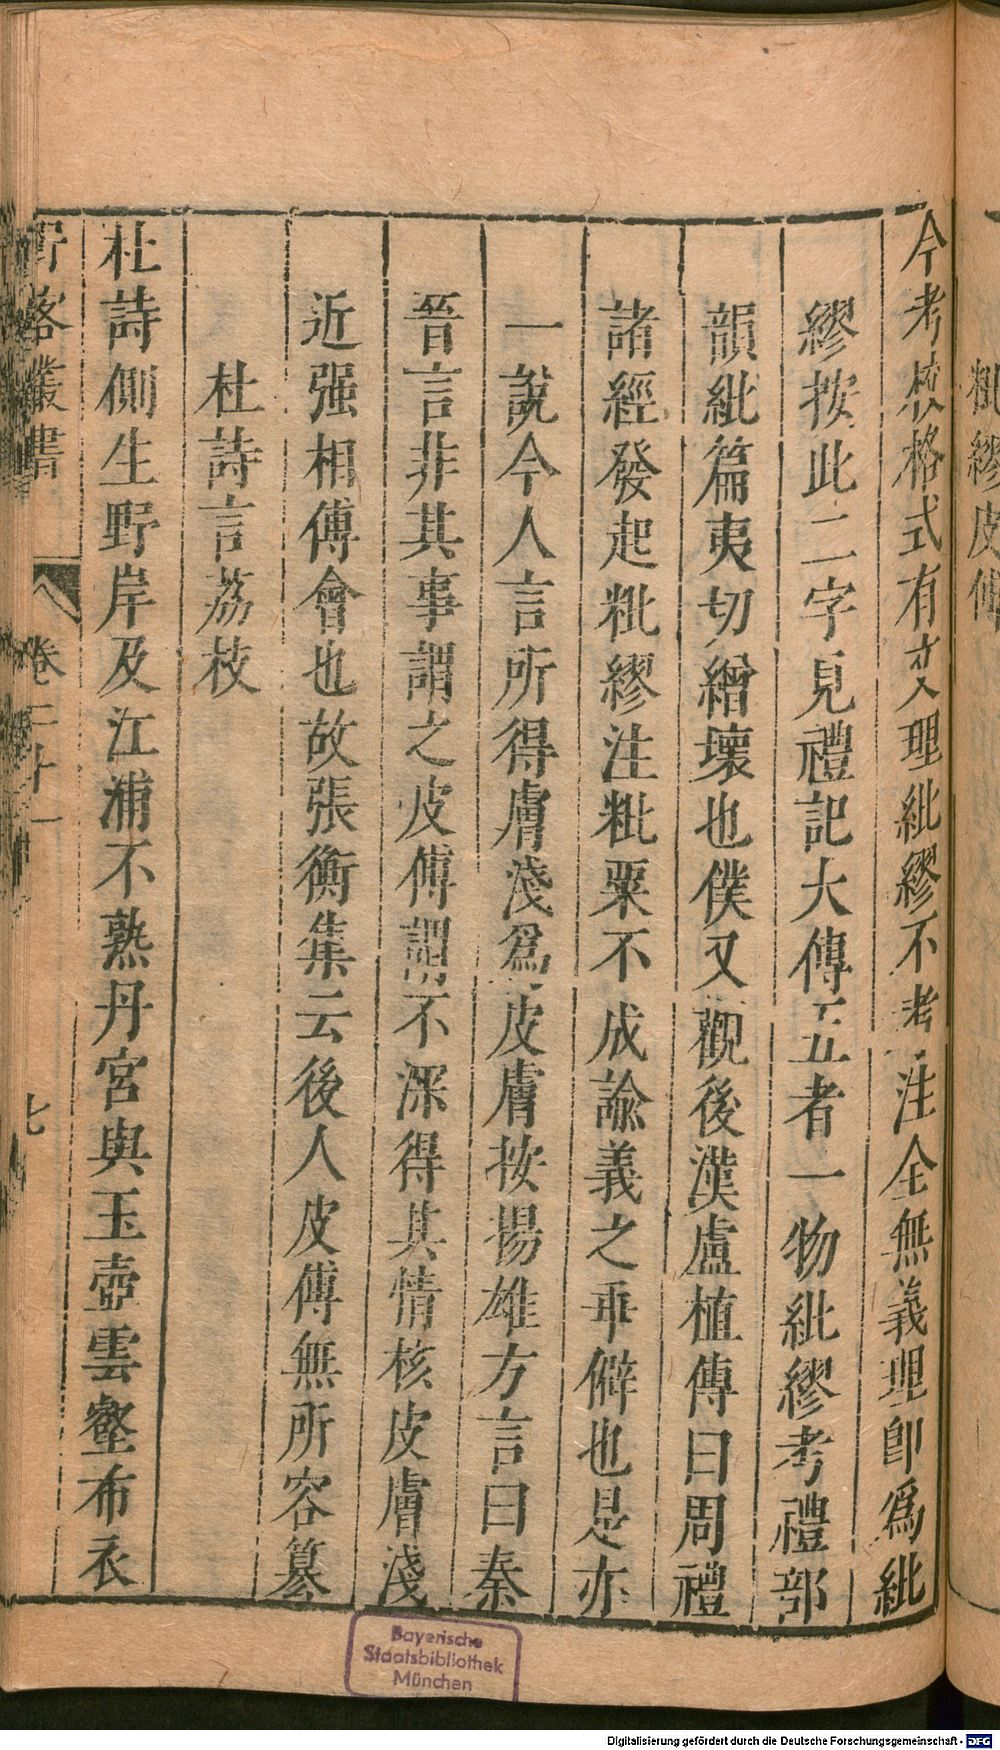 紕繆皮傅
今考校格式有文理紕繆不考注全無義理即為紕
繆按此二字見禮記大傳五者一物紕繆考禮部
韻紕篇夷切繒壞也僕又觀後漢盧植傳曰周禮
諸經發起粃繆注粃粟不成諭義之乖僻也是亦
一說今人言所得膚淺爲皮膚按揚雄方言曰秦
晉言非其事謂之皮傅謂不深得其情核皮膚淺
近强相傅會也故張衡集云後人皮傅無所容篡
杜詩言荔枝
杜詩側生野岸及江浦不熟丹宮與玉壺雲壑布衣
野客叢書
卷二十一
七
Bayerische
Staatsbibliothek
München
Digitalisierung gefördert durch die Deutsche Forschungsgemeinschaft - DFG